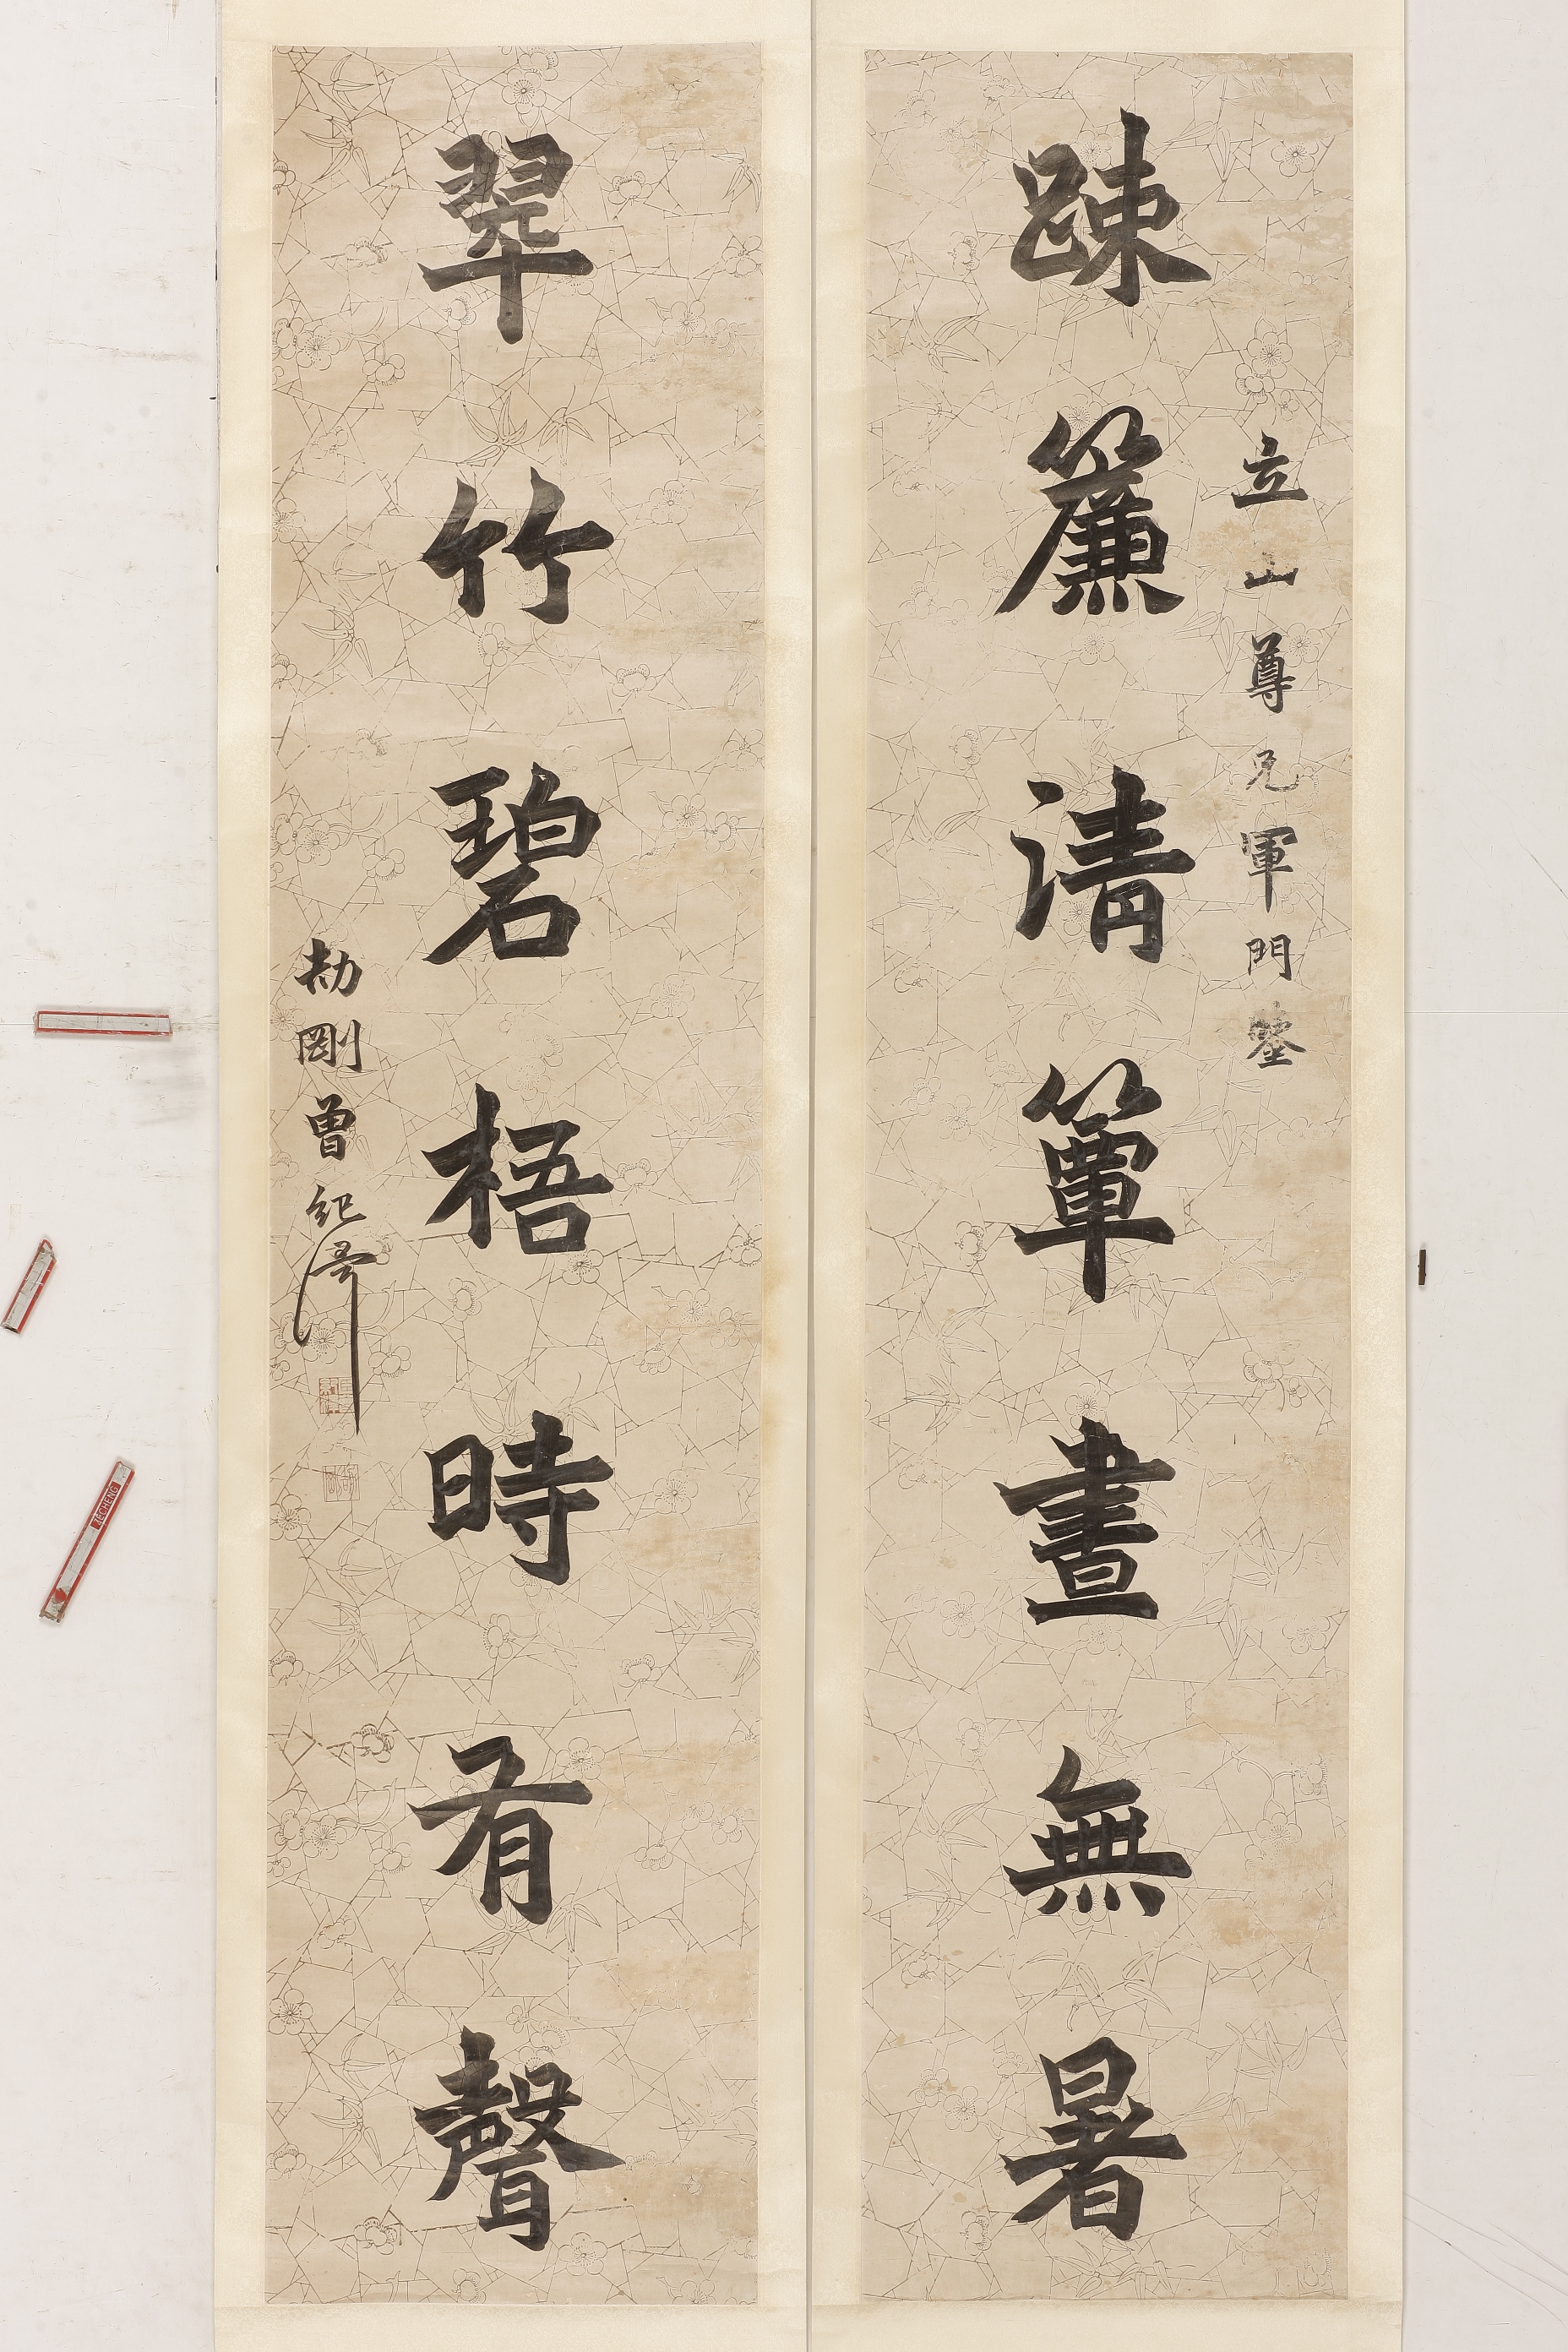 立山尊兄軍門鑒
疎簾清簟晝無暑
翠竹碧梧時有聲
劼剛曾紀澤
KECHENG